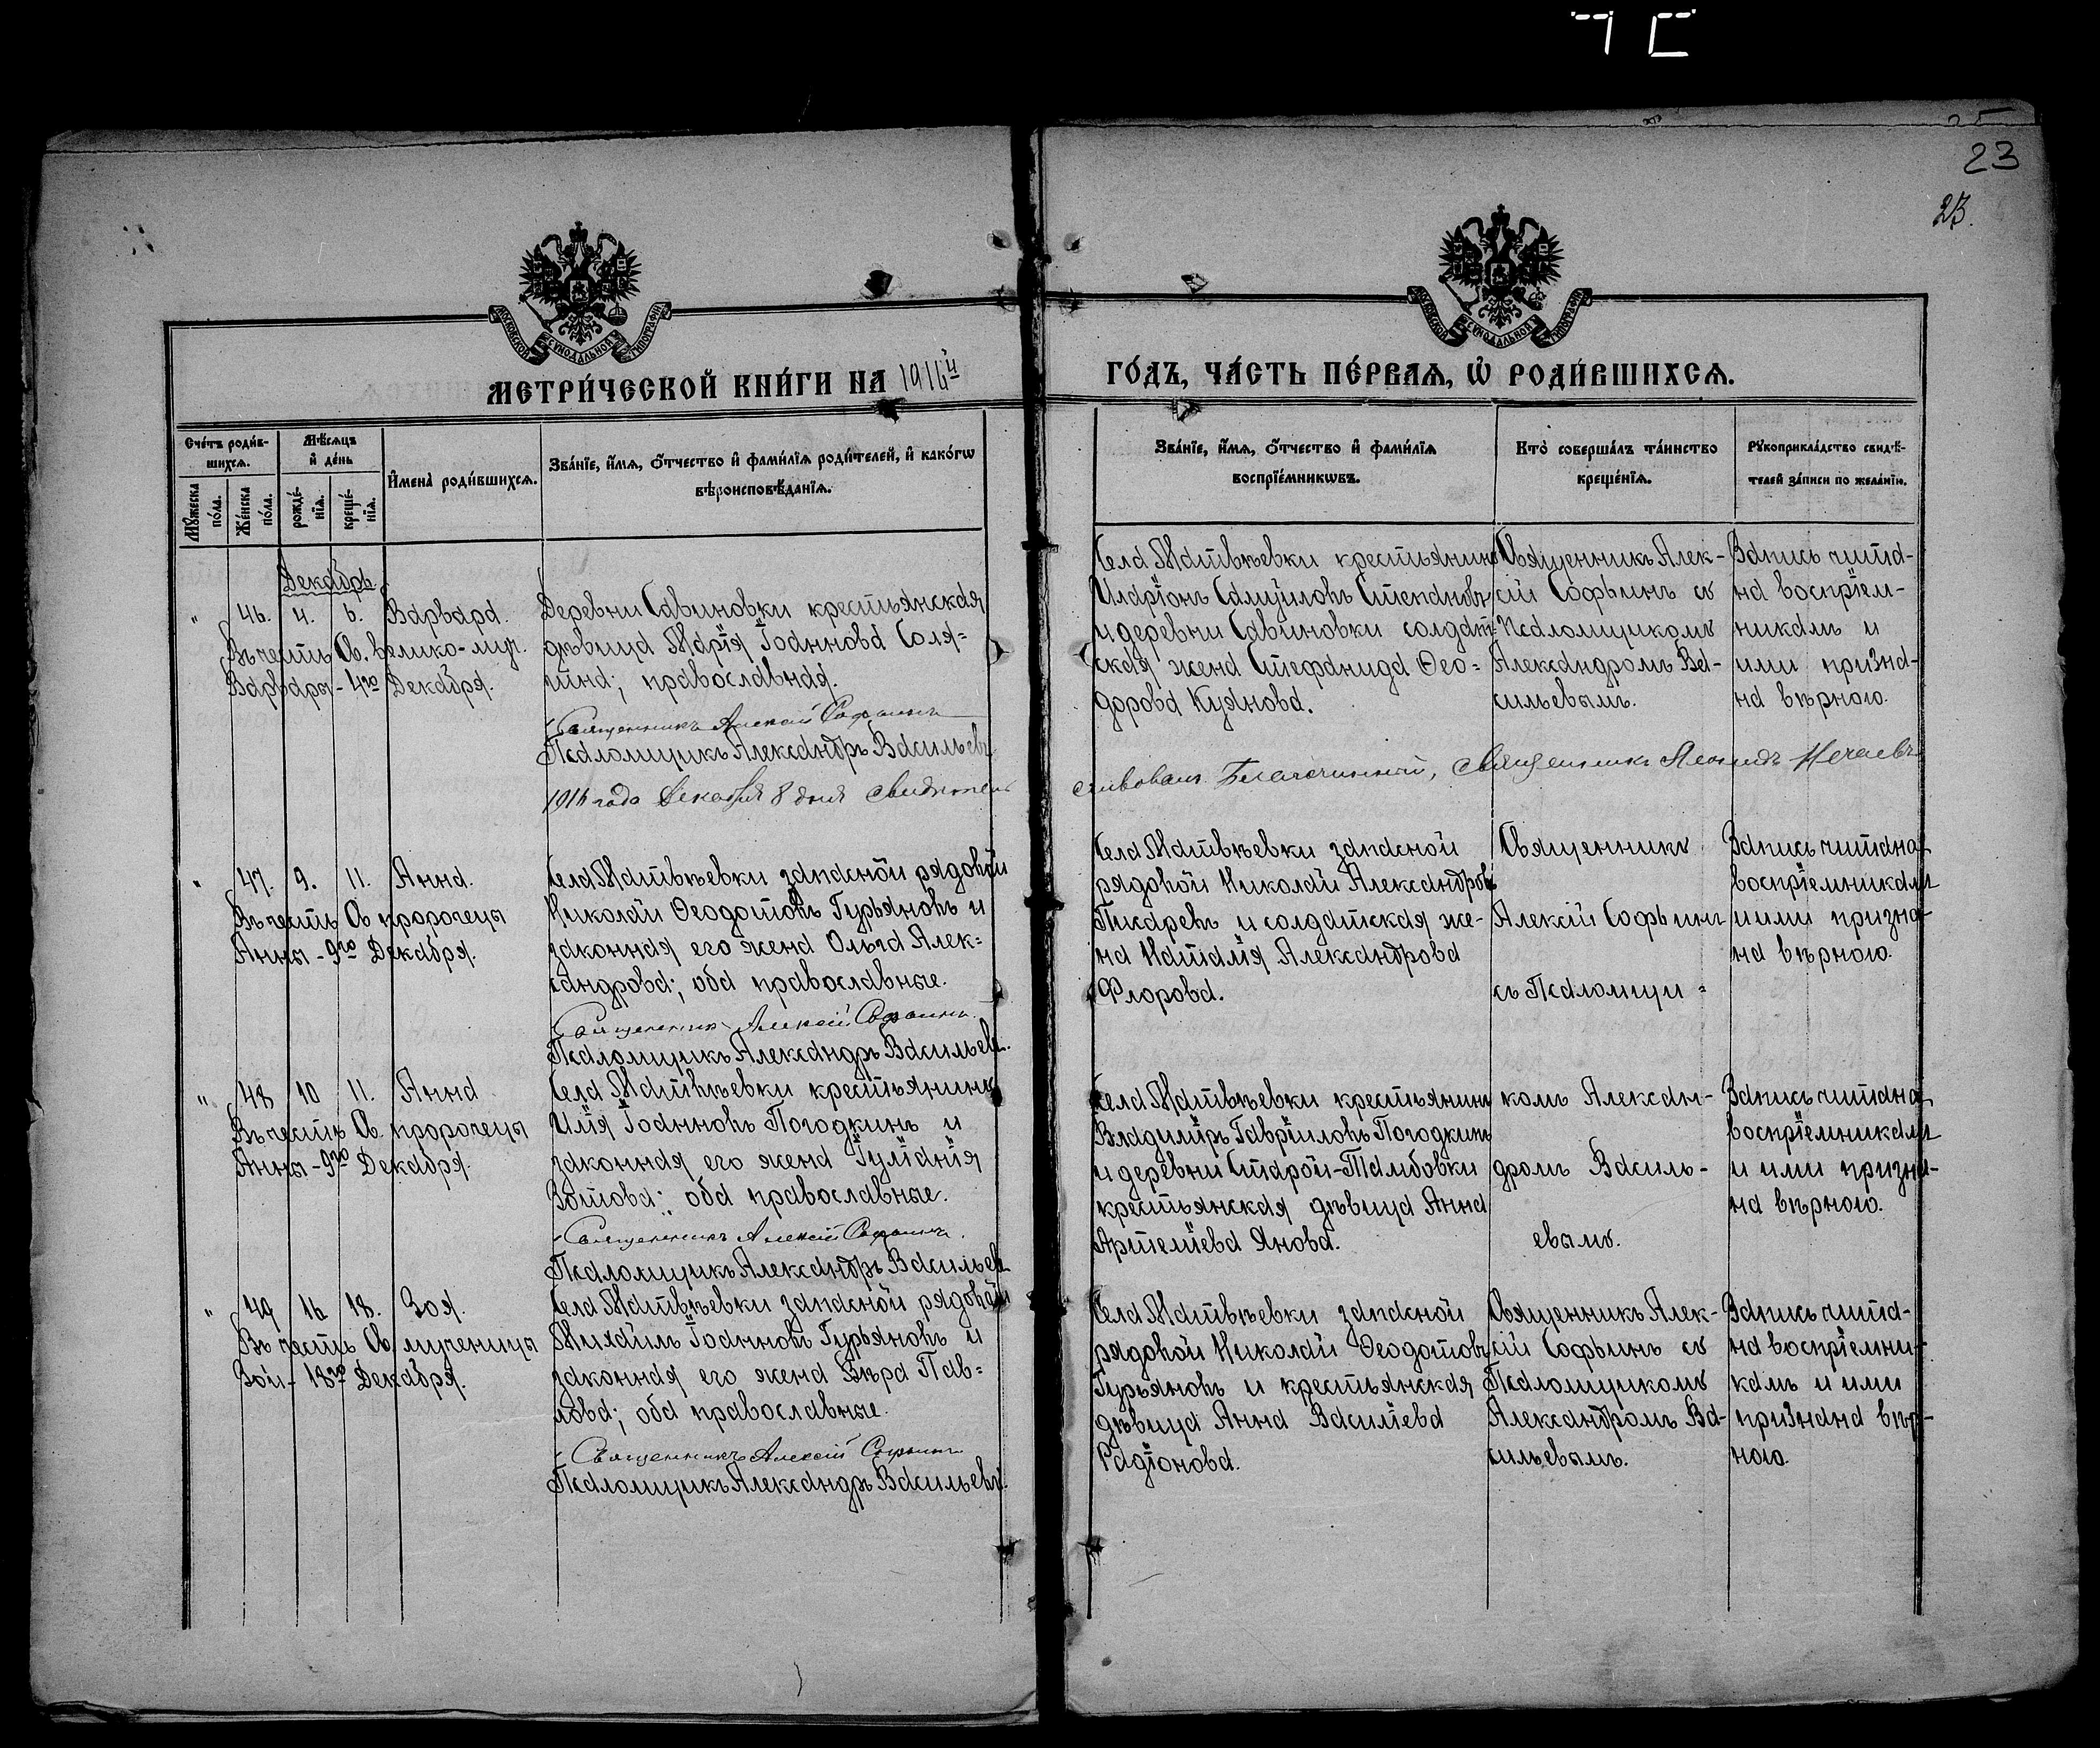 23
23.
МОСКОВСКОЙ СѴНОДАЛЬНОЙ ТИПОГРАФІИ
МОСКОВСКОЙ СѴНОДАЛЬНОЙ ТИПОГРАФІИ
МЕТРИ́ЧЕСКОЙ КНИ́ГИ НА 1916й
ГО́ДЪ, ЧА́СТЬ ПЕ́РВАѦ, Ѡ҆ РОДИ́ВШИХСѦ.
Сче́тъ роди́в-
шихсѧ.
Мꙋ́жеска
по́ла.
Же́нска
по́ла.
Мѣ́сѧцъ
и҆ де́нь
рожде́-
нїѧ.
креще́-
нїѧ.
И҆мена̀ роди́вшихсѧ.
Зва́нїе, и҆́мѧ, ѻ҆́тчество и҆ фами́лїѧ роди́телей, и҆ како́гѡ
вѣроисповѣ́данїѧ.
Зва́нїе, и҆́мѧ, ѻ҆́тчество и҆ фами́лїѧ
воспрїе́мникѡвъ.
Кто̀ соверша́лъ та́инство
креще́нїѧ.
Рꙋкоприкла́дство свидѣ́-
телей за́писи по жела́нїю.
Декабрь.
" 46. 4. 6. Варвара.
Въ честь Св. велико-муч.
Варвары - 4го Декабря.
Деревни Савиновки крестьянская
дѣвица Марія Іоаннова Соля=
ина; православная.
Священникъ Алексій Софьинъ
Псаломщикъ Александръ Васильевъ
Села Матвѣевки крестьянинъ
Иларіонъ Самуиловъ Степановъ
и деревни Савиновки солдат=
ская жена Стефанида Ѳео=
дорова Куянова.
Священникъ Алек-
сій Софьинъ съ
Псаломщикомъ
Александромъ Ва-
сильевымъ.
Запись чита-
на воспріем-
никамъ и
ими призна-
на вѣрною.
1916 года Декабря 8 дня свидѣтель
ствовалъ Благочинный, Священникъ Леонидъ Нечаевъ
" 47. 9. 11. Анна.
Въ честь Св пророчецы
Анны - 9го Декабря.
Села Матвѣевки запасной рядовой
Николай Ѳеодотовъ Гурьяновъ и
законная его жена Ольга Алек=
сандрова; оба православные.
Священникъ Алексій Софьинъ.
Псаломщикъ Александръ Васильевъ.
Села Матвѣевки запасной
рядовой Николай Александровъ
Писаревъ и солдатская же-
на Наталія Александрова
Флорова.
Священникъ
Алексій Софьинъ
съ Псаломщи=
Запись читана
воспріемникамъ
и ими призна-
на вѣрною.
" 48 10 11. Анна
Въ честь Св. пророчецы
Анны - 9го Декабря.
Села Матвѣевки крестьянинъ
Илія Іоанновъ Погодкинъ и
законная его жена Іуліанія
Зотова; оба православные.
Священникъ Алексій Софьинъ.
Псаломщикъ Александръ Васильевъ
Села Матвѣевки крестьянинъ
Владиміръ Гавріиловъ Погодкинъ
и деревни Старой-Тамбовки
крестьянская дѣвица Анна
Артеміева Янова.
комъ Алексан-
дромъ Василь-
евымъ.
Запись читана
воспріемникамъ
и ими призна-
на вѣрною.
" 49 16 18. Зоя.
Въ честь Св. мученицы
Зои - 18го Декабря.
Села Матвѣевки запасной рядовой
Михаилъ Іоанновъ Гурьяновъ и
законная его жена Вѣра Пав=
лова; оба православные.
Священникъ Алексій Софьинъ
Псаломщикъ Александръ Васильевъ.
Села Матвѣевки запасной
рядовой Николай Ѳеодотовъ
Гурьяновъ и крестьянская
дѣвица Анна Василіева
Радіонова.
Священникъ Алек-
сій Софьинъ съ
Псаломщикомъ
Александромъ Ва-
сильевымъ.
Запись чита-
на воспріемни-
камъ и ими
признана вѣр-
ною.